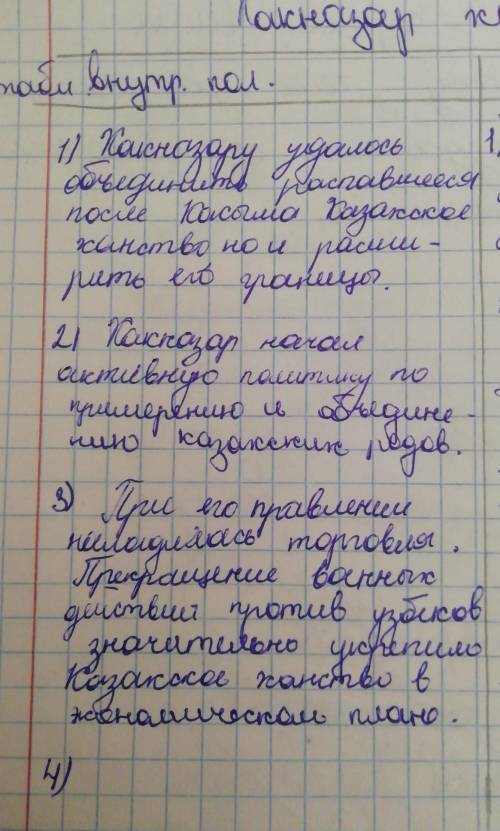 Хакназар
внутр. пол.
1) Хакназару удалось
1)
объединить распавшееся
после Касыма Казахское
ханство но и расши-
рить его границы.
2) Хакназар начал
активную политику по
примерению и объедине-
нию казахских родов.
3) При его правлении
наладилась торговля.
Прекращение ваинных
действий против узбеков
значительно укрепило
Казахское ханство в
экономическом плане.
4)